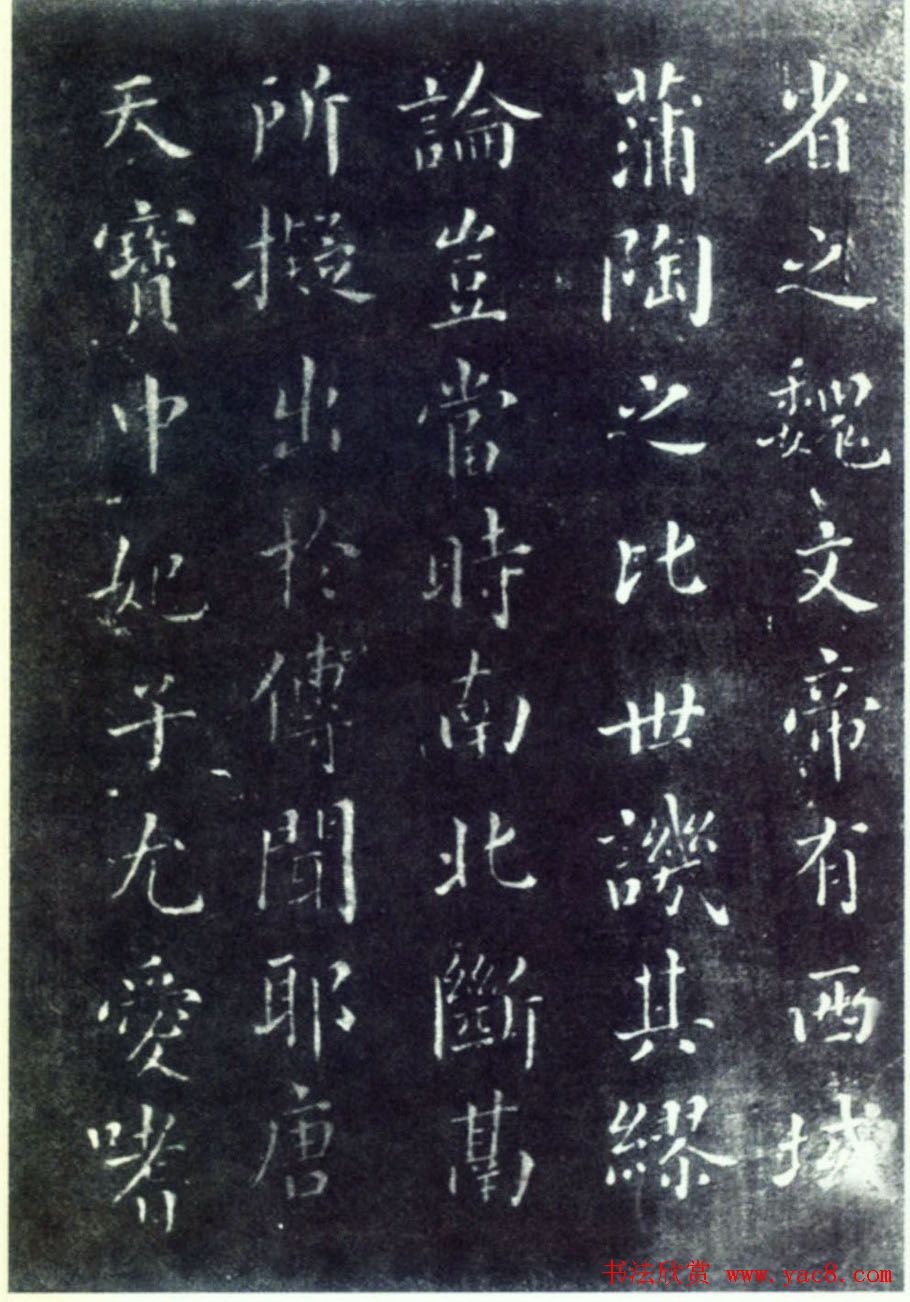 省之魏文帝有西域
蒲陶之比世譏其繆
論豈當時南北斷萬
所擬出於傳聞耶唐
天寶中妃子尤愛嗜
书法欣赏 www.yac8.com